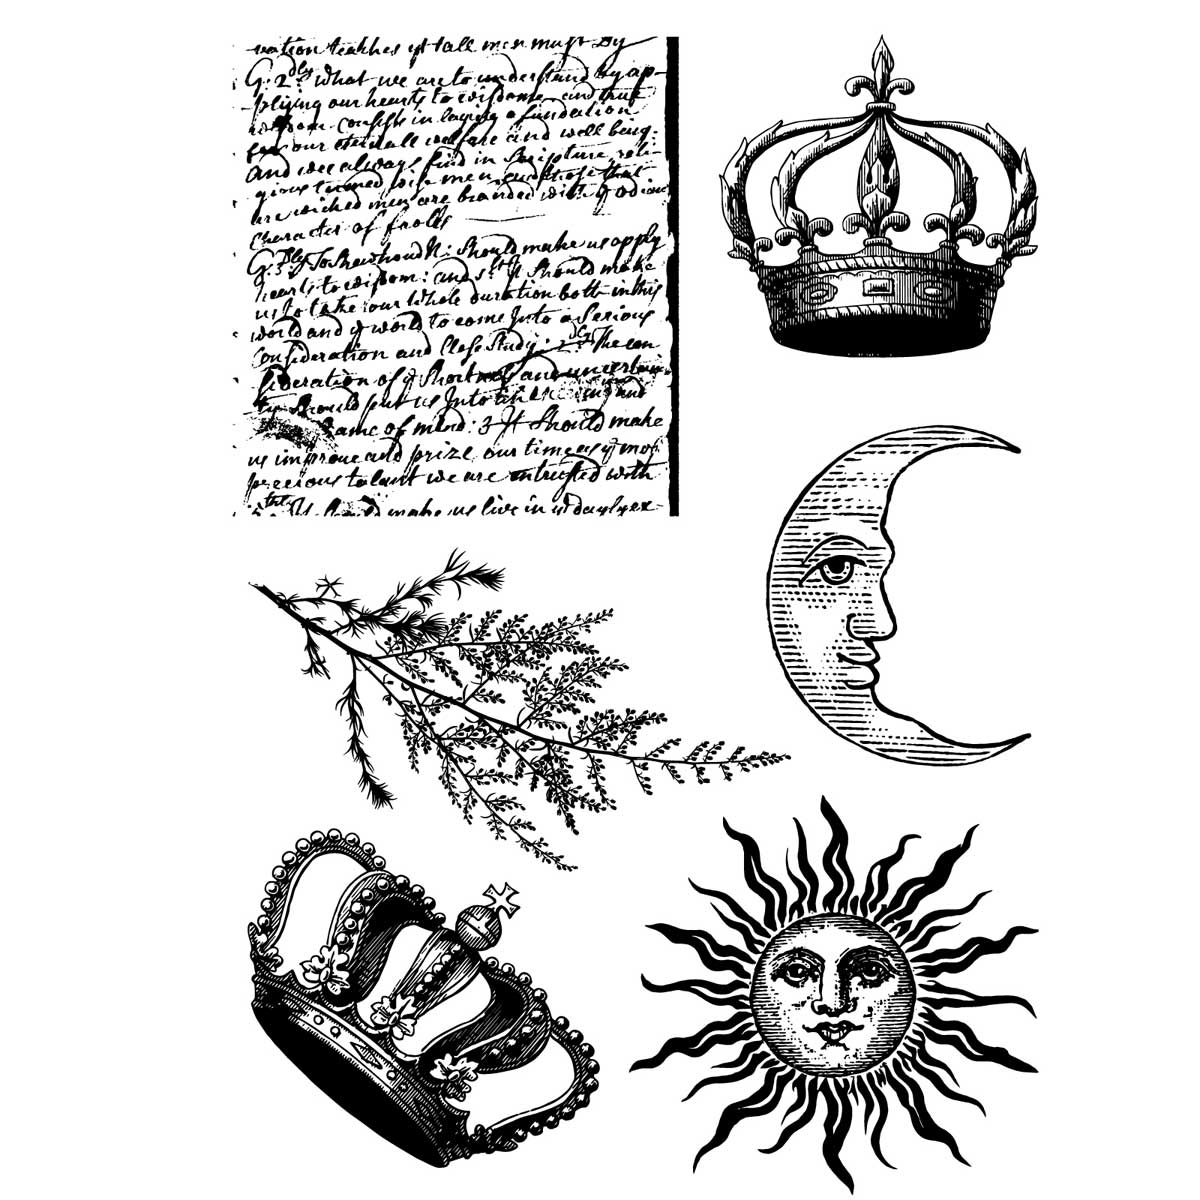 vation teaches yt all men must By
G: 2dly what we are to understand by ap-
plying our hearts to wisdome and true
wisdom consists in laying a fundation
for our eternall welfare and well being:
And we always find in Scripture reli-
gious turned wise men and those that
are wicked men are branded with ye odious
Character of fools
G: 3dly To Shew how Nt: should make us apply
hearts to wisdom: and 1st It Should make
us to take our Whole duration both in this
world and ye world to come Into a Serious
Consideration and Close Study: 2dly The con
sideration of ye Short and uncertain
ty Should put us Into the
frame of mind: 3 It Should make
us improve and prize our time as ye most
precious talant we are intrusted with
the It should make us live in ye dayly ex-